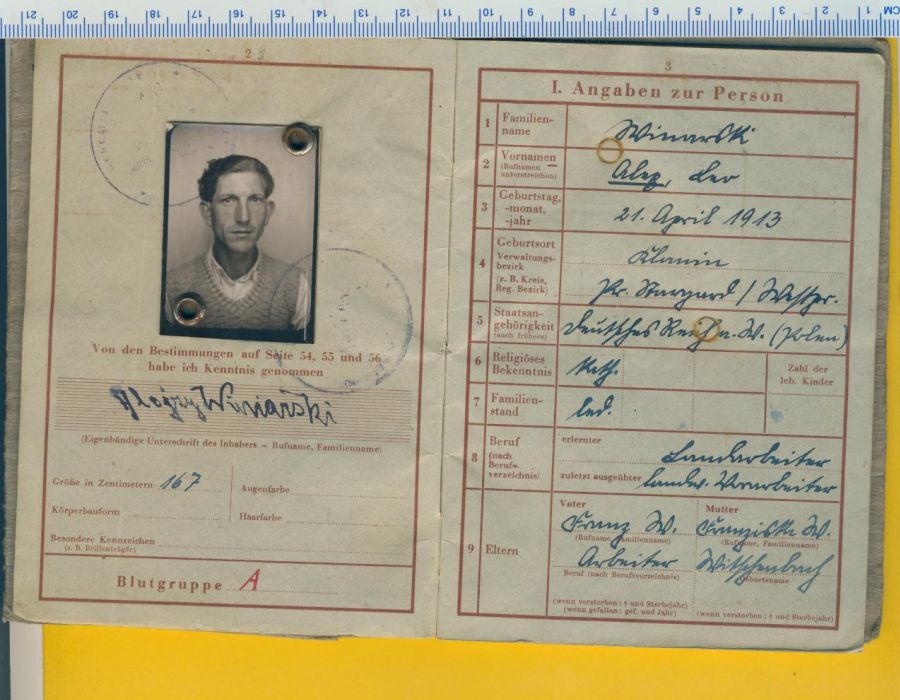 CM 1 2 3 4 5 6 7 8 9 10 11 12 13 14 15 16 17 18 19 20 21
2
Von den Bestimmungen auf Seite 54, 55 und 56
habe ich Kenntnis genommen
Winiarski
(Eigenhändige Unterschrift des Inhabers — Rufname, Familienname)
Größe in Zentimetern 167
Augenfarbe
Körperbauform
Haarfarbe
Besondere Kennzeichen
(z. B. Brillenträger)
Blutgruppe A
3
I. Angaben zur Person
1 Familien-
name
Winarski
2 Vornamen
(Rufnamen
unterstreichen)
Alex, Leo
3 Geburtstag,
-monat,
-jahr
21. April 1913
4 Geburtsort
Verwaltungs-
bezirk
(z. B. Kreis,
Reg. Bezirk)
Klonin
Pr. Stargard / Westpr.
5 Staatsan-
gehörigkeit
(auch frühere)
Deutsches Reich n. W. (Polen)
6 Religiöses
Bekenntnis
Kath.
Zahl der
leb. Kinder
7 Familien-
stand
led.
8 Beruf
(nach
Berufs-
verzeichnis)
erlernter
Landarbeiter
zuletzt ausgeübter landw. Vorarbeiter
9 Eltern
Vater
Franz W.
(Rufname, Familienname)
Arbeiter
Beruf (nach Berufsverzeichnis)
(wenn verstorben: † und Sterbejahr)
(wenn gefallen: gef. und Jahr)
Mutter
Franziska W.
(Rufname, Familienname)
Witschenbach
Geburtsname
(wenn verstorben: † und Sterbejahr)